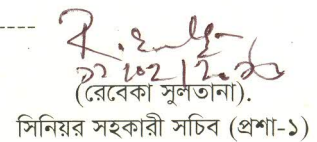 (রেবেকা সুলতানা).
সিনিয়র সহকারী সচিব (প্রশা-১)